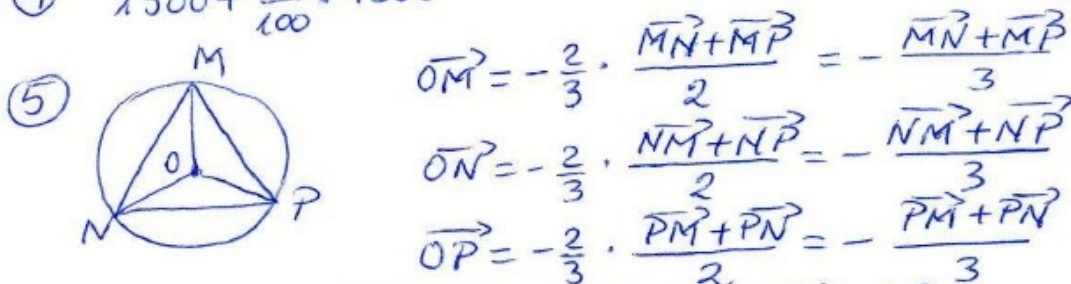 100
⑤
M
O
N
P
OM⃗ = - 2/3 · (MN⃗ + MP⃗)/2 = - (MN⃗ + MP⃗)/3
ON⃗ = - 2/3 · (NM⃗ + NP⃗)/2 = - (NM⃗ + NP⃗)/3
OP⃗ = - 2/3 · (PM⃗ + PN⃗)/2 = - (PM⃗ + PN⃗)/3